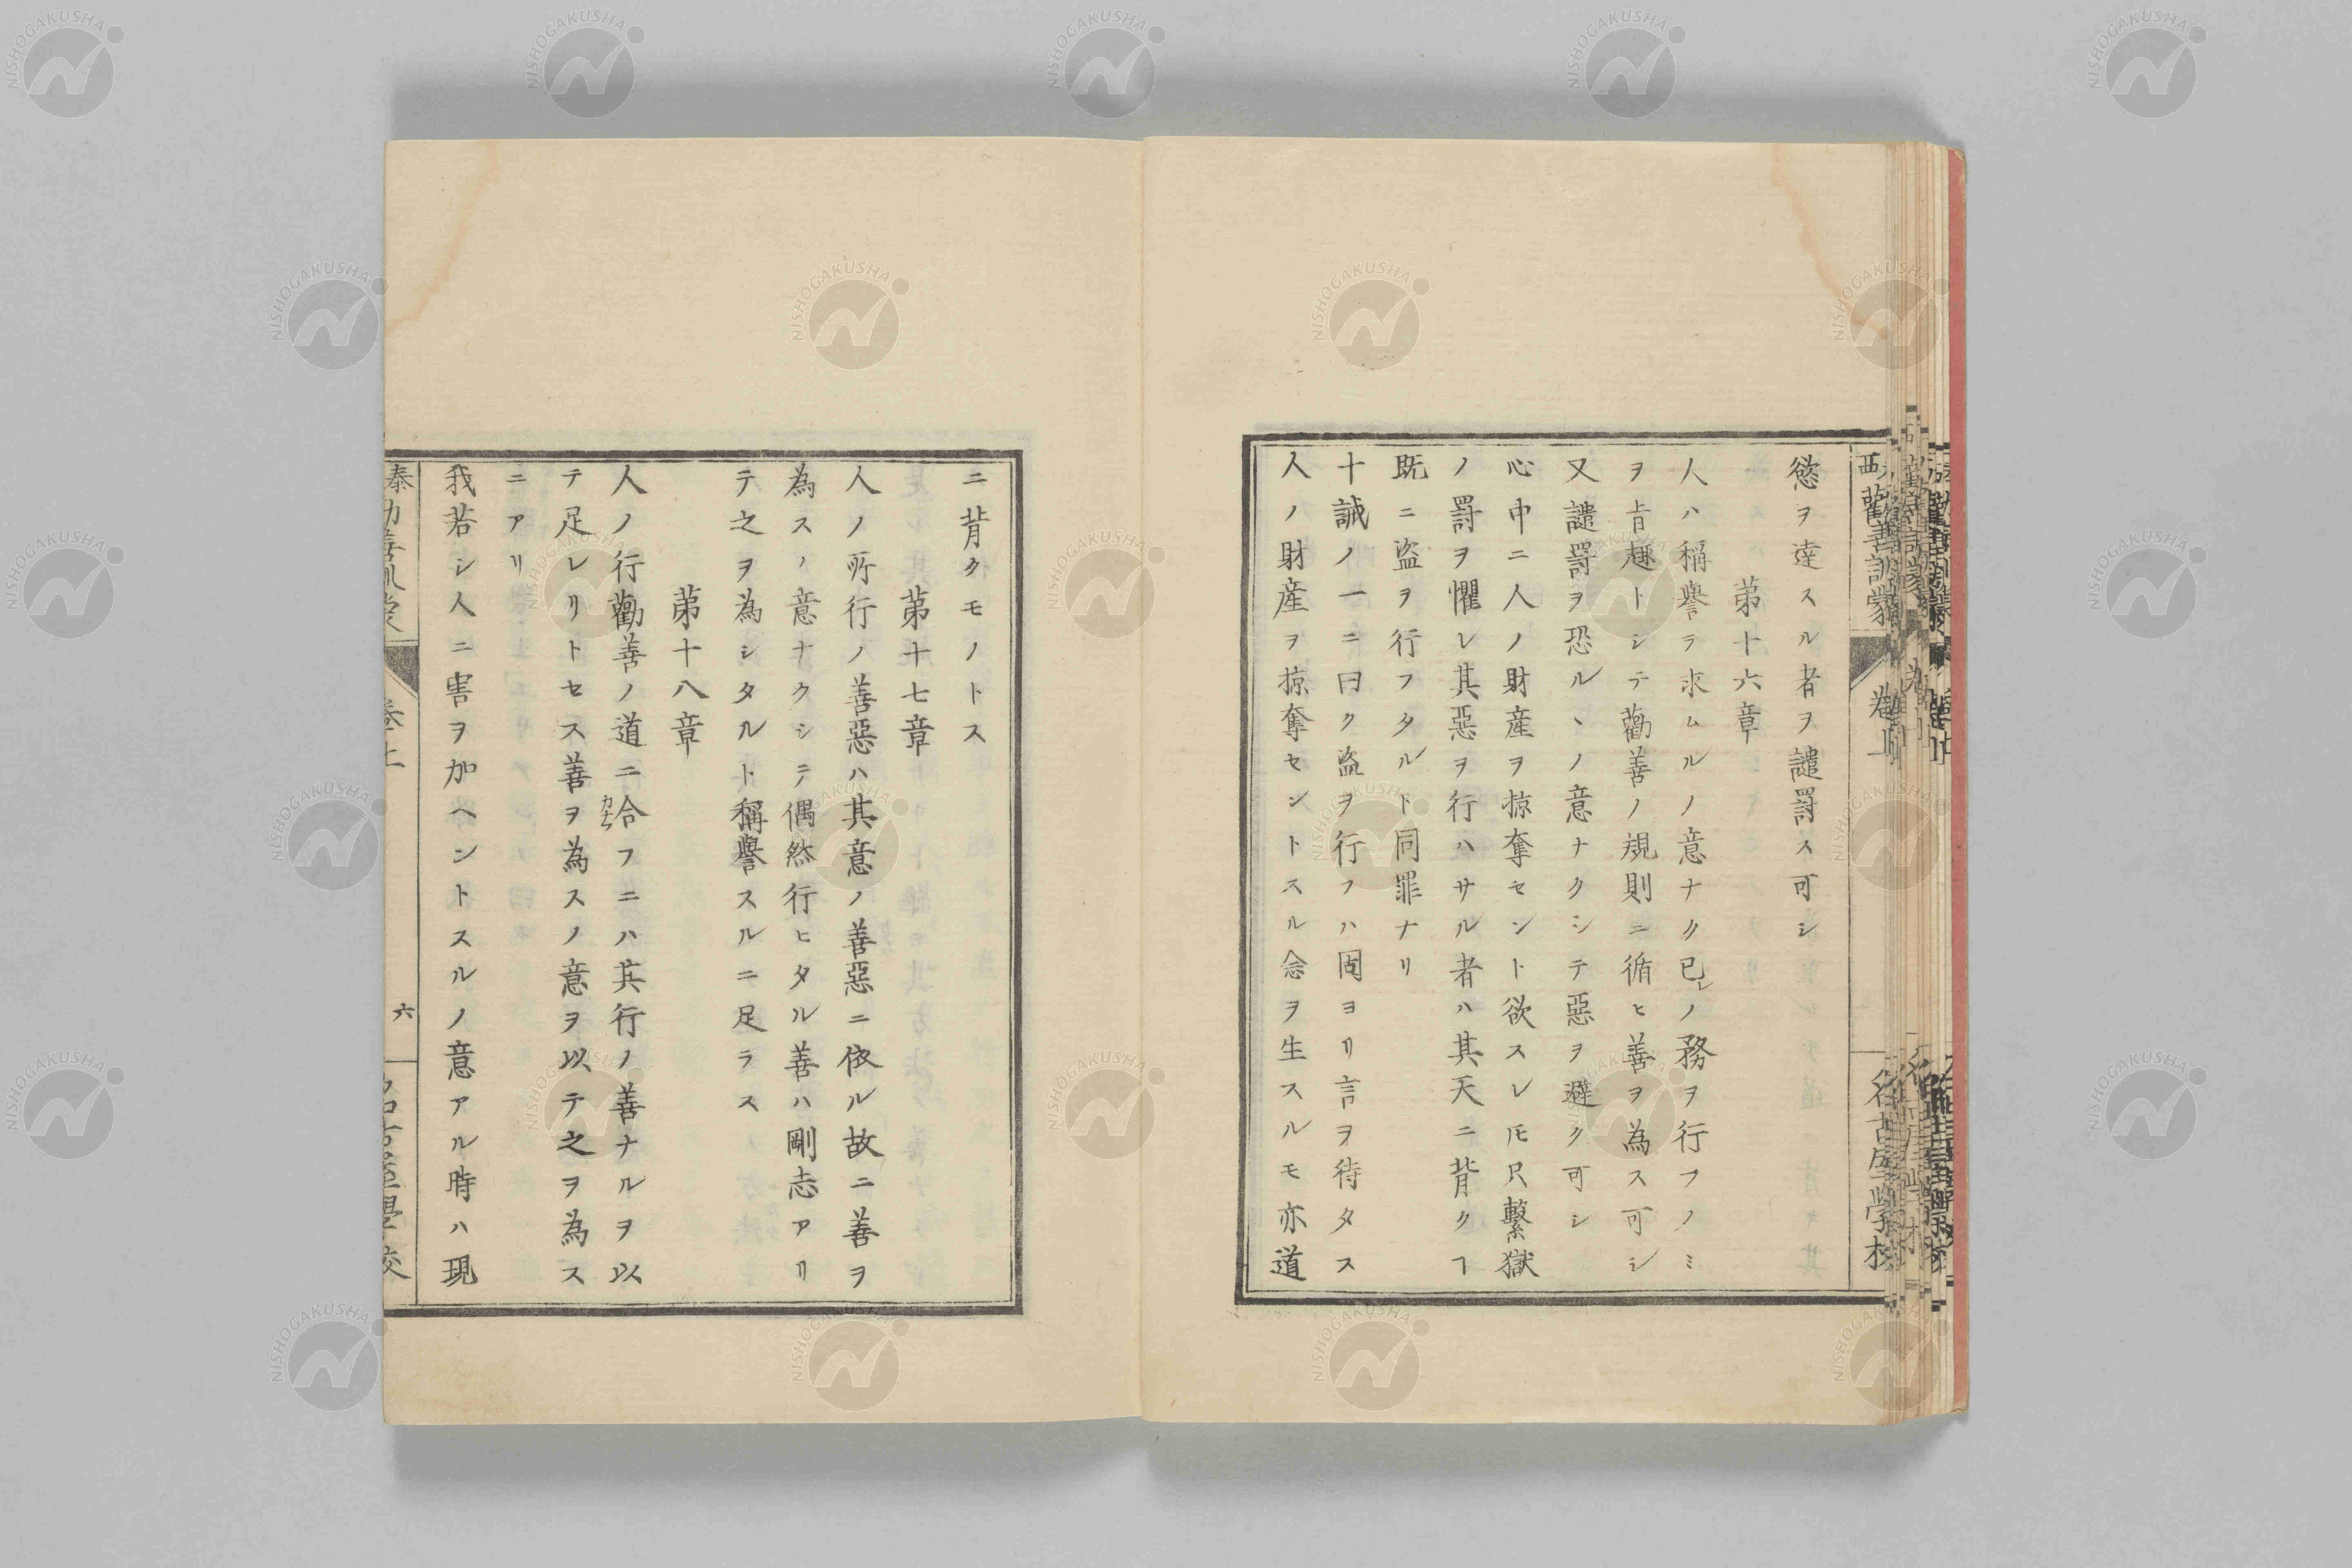 慾ヲ達スル者ヲ譴罸ス可シ
第十六章
人ハ稱譽ヲ求ムルノ意ナク已レノ務ヲ行フノミ
ヲ㫖趣トシテ勸善ノ規則ニ循ヒ善ヲ為ス可シ
又譴罸ヲ恐ルヽノ意ナクシテ惡ヲ避ク可シ
心中ニ人ノ財産ヲ掠奪セント欲スレ𪜈只繋獄
ノ罸ヲ懼レ其惡ヲ行ハサル者ハ其天ニ背クヿ
既ニ盗ヲ行フタルト同罪ナリ
十誡ノ一ニ曰ク盗ヲ行フハ固ヨリ言ヲ待タス
人ノ財産ヲ掠奪セントスル念ヲ生スルモ亦道
ニ背クモノトス
第十七章
人ノ所行ノ善惡ハ其意ノ善惡ニ依ル故ニ善ヲ
為スノ意ナクシテ偶然行ヒタル善ハ剛志アリ
テ之ヲ為シタルト稱譽スルニ足ラス
第十八章
人ノ行勸善ノ道ニ合フニハ其行ノ善ナルヲ以
テ足レリトセス善ヲ為スノ意ヲ以テ之ヲ為ス
ニアリ
我若シ人ニ害ヲ加ヘントスルノ意アル時ハ現
六
NISHOGAKUSHA